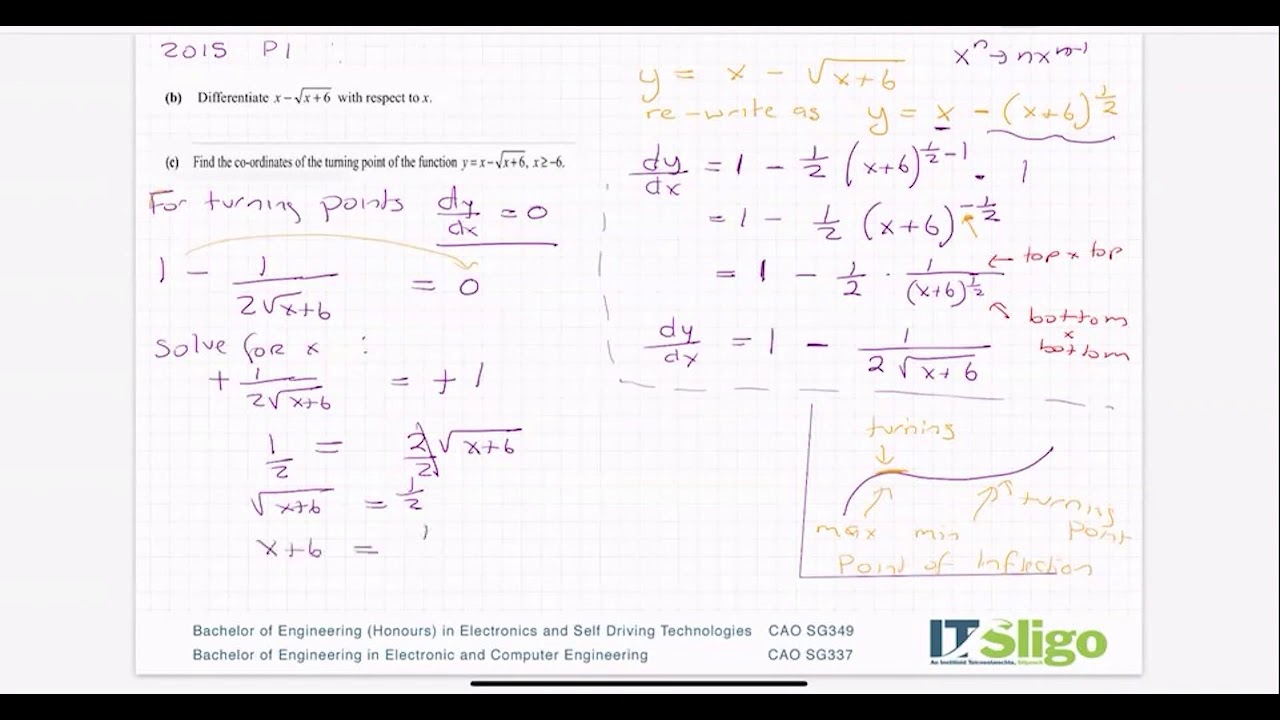 2015 P1
(b) Differentiate x − √(x+6) with respect to x.
(c) Find the co-ordinates of the turning point of the function y = x − √(x+6), x ≥ −6.
For turning points dy/dx = 0
1 − 1/(2√(x+6)) = 0
Solve for x :
+ 1/(2√(x+6)) = + 1
1/2 = 2√(x+6)/2
√(x+6) = 1/2
x+6 =
xⁿ → nxⁿ⁻¹
y = x − √(x+6)
re-write as y = x − (x+6)^(1/2)
dy/dx = 1 − 1/2 (x+6)^(1/2 − 1) . 1
= 1 − 1/2 (x+6)^(−1/2)
= 1 − 1/2 · 1/(x+6)^(1/2) ← top x top
bottom
x
bottom
dy/dx = 1 − 1/(2√(x+6))
turning
max min turning
point
Point of Inflection
Bachelor of Engineering (Honours) in Electronics and Self Driving Technologies CAO SG349
Bachelor of Engineering in Electronic and Computer Engineering CAO SG337
IT Sligo
An Institiúid Teicneolaíochta, Sligeach